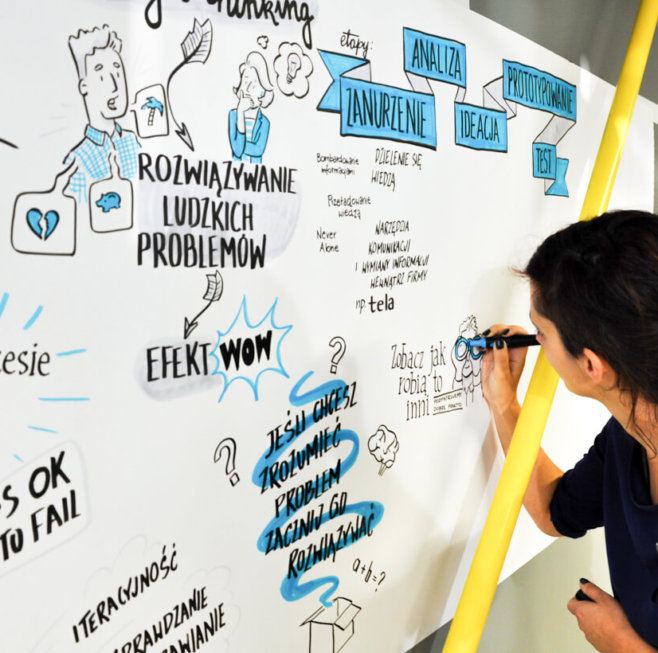 thinking
ROZWIĄZYWANIE
LUDZKICH
PROBLEMÓW
EFEKT WOW
etapy:
ZANURZENIE
ANALIZA
IDEACJA
PROTOTYPOWANIE
TEST
Bombardowanie
informacjami
DZIELENIE SIĘ
WIEDZĄ
Przeładowanie
wiedzą
Never
Alone
NARZĘDZIA
KOMUNIKACJI
I WYMIANY INFORMACJI
WEWNĄTRZ FIRMY
np tela
Zobacz jak
robią to
inni
? JEŚLI CHCESZ
ZROZUMIEĆ
PROBLEM
ZACZNIJ GO
ROZWIĄZYWAĆ
?
a+b=?
esie
S OK
TO FAIL
ITERACYJNOŚĆ
PRAWDZANIE
AWIANIE